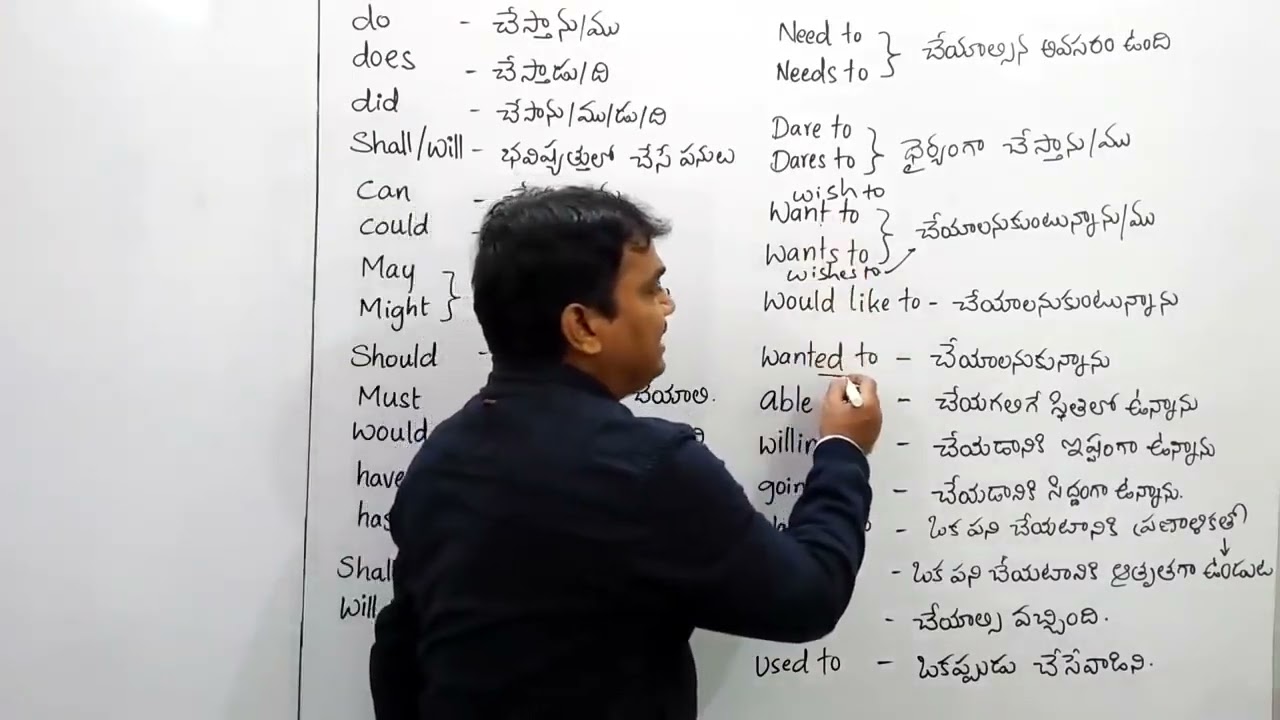 do - చేస్తాను/ము
does - చేస్తాడు/ది
did - చేసాను/ము/డు/ది
Shall/will - భవిష్యత్తులో చేసే పనులు
Can -
could
May
Might
Should -
Must చేయాలి.
would
have
has
Shall
Will
Need to
Needs to } చేయాల్సిన అవసరం ఉంది
Dare to
Dares to } ధైర్యంగా చేస్తాను/ము
wish to
Want to
Wants to } చేయాలనుకుంటున్నాను/ము
wishes to
Would like to - చేయాలనుకుంటున్నాను
Wanted to - చేయాలనుకున్నాను
able - చేయగలిగే స్థితిలో ఉన్నాను
- చేయడానికి ఇష్టంగా ఉన్నాను
- చేయడానికి సిద్ధంగా ఉన్నాను.
- ఒక పని చేయటానికి ప్రణాళికతో
- ఒక పని చేయటానికి ఆతృతగా ఉండుట
- చేయాల్సి వచ్చింది.
Used to - ఒకప్పుడు చేసేవాడిని.